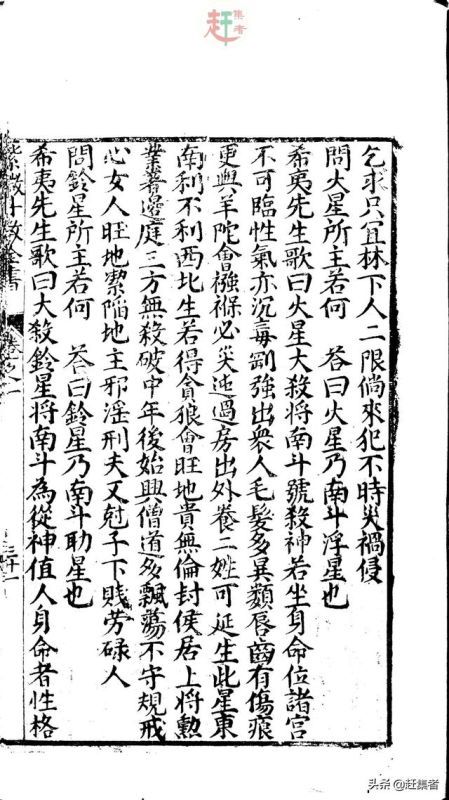 赶集者
乞求只宜林下人二限倘來犯不時災禍侵
問火星所主若何　荅曰火星乃南斗浮星也
希夷先生歌曰火星大殺將南斗號殺神若坐身命位諸宮
不可臨性氣亦沉毒剛強出衆人毛髮多異類唇齒有傷痕
更與羊陀會襁褓必災迍過房出外養二姓可延生此星東
南利不利西北生若得貪狼會旺地貴無倫封侯居上將勲
業著邊庭三方無殺破中年後始興僧道多飄蕩不守規戒
心女人旺地潔陷地主邪淫刑夫又尅子下賤勞碌人
問鈴星所主若何　荅曰鈴星乃南斗助星也
希夷先生歌曰大殺鈴星將南斗為從神值人身命者性格
紫微斗数全書　卷之一
头条 @赶集者